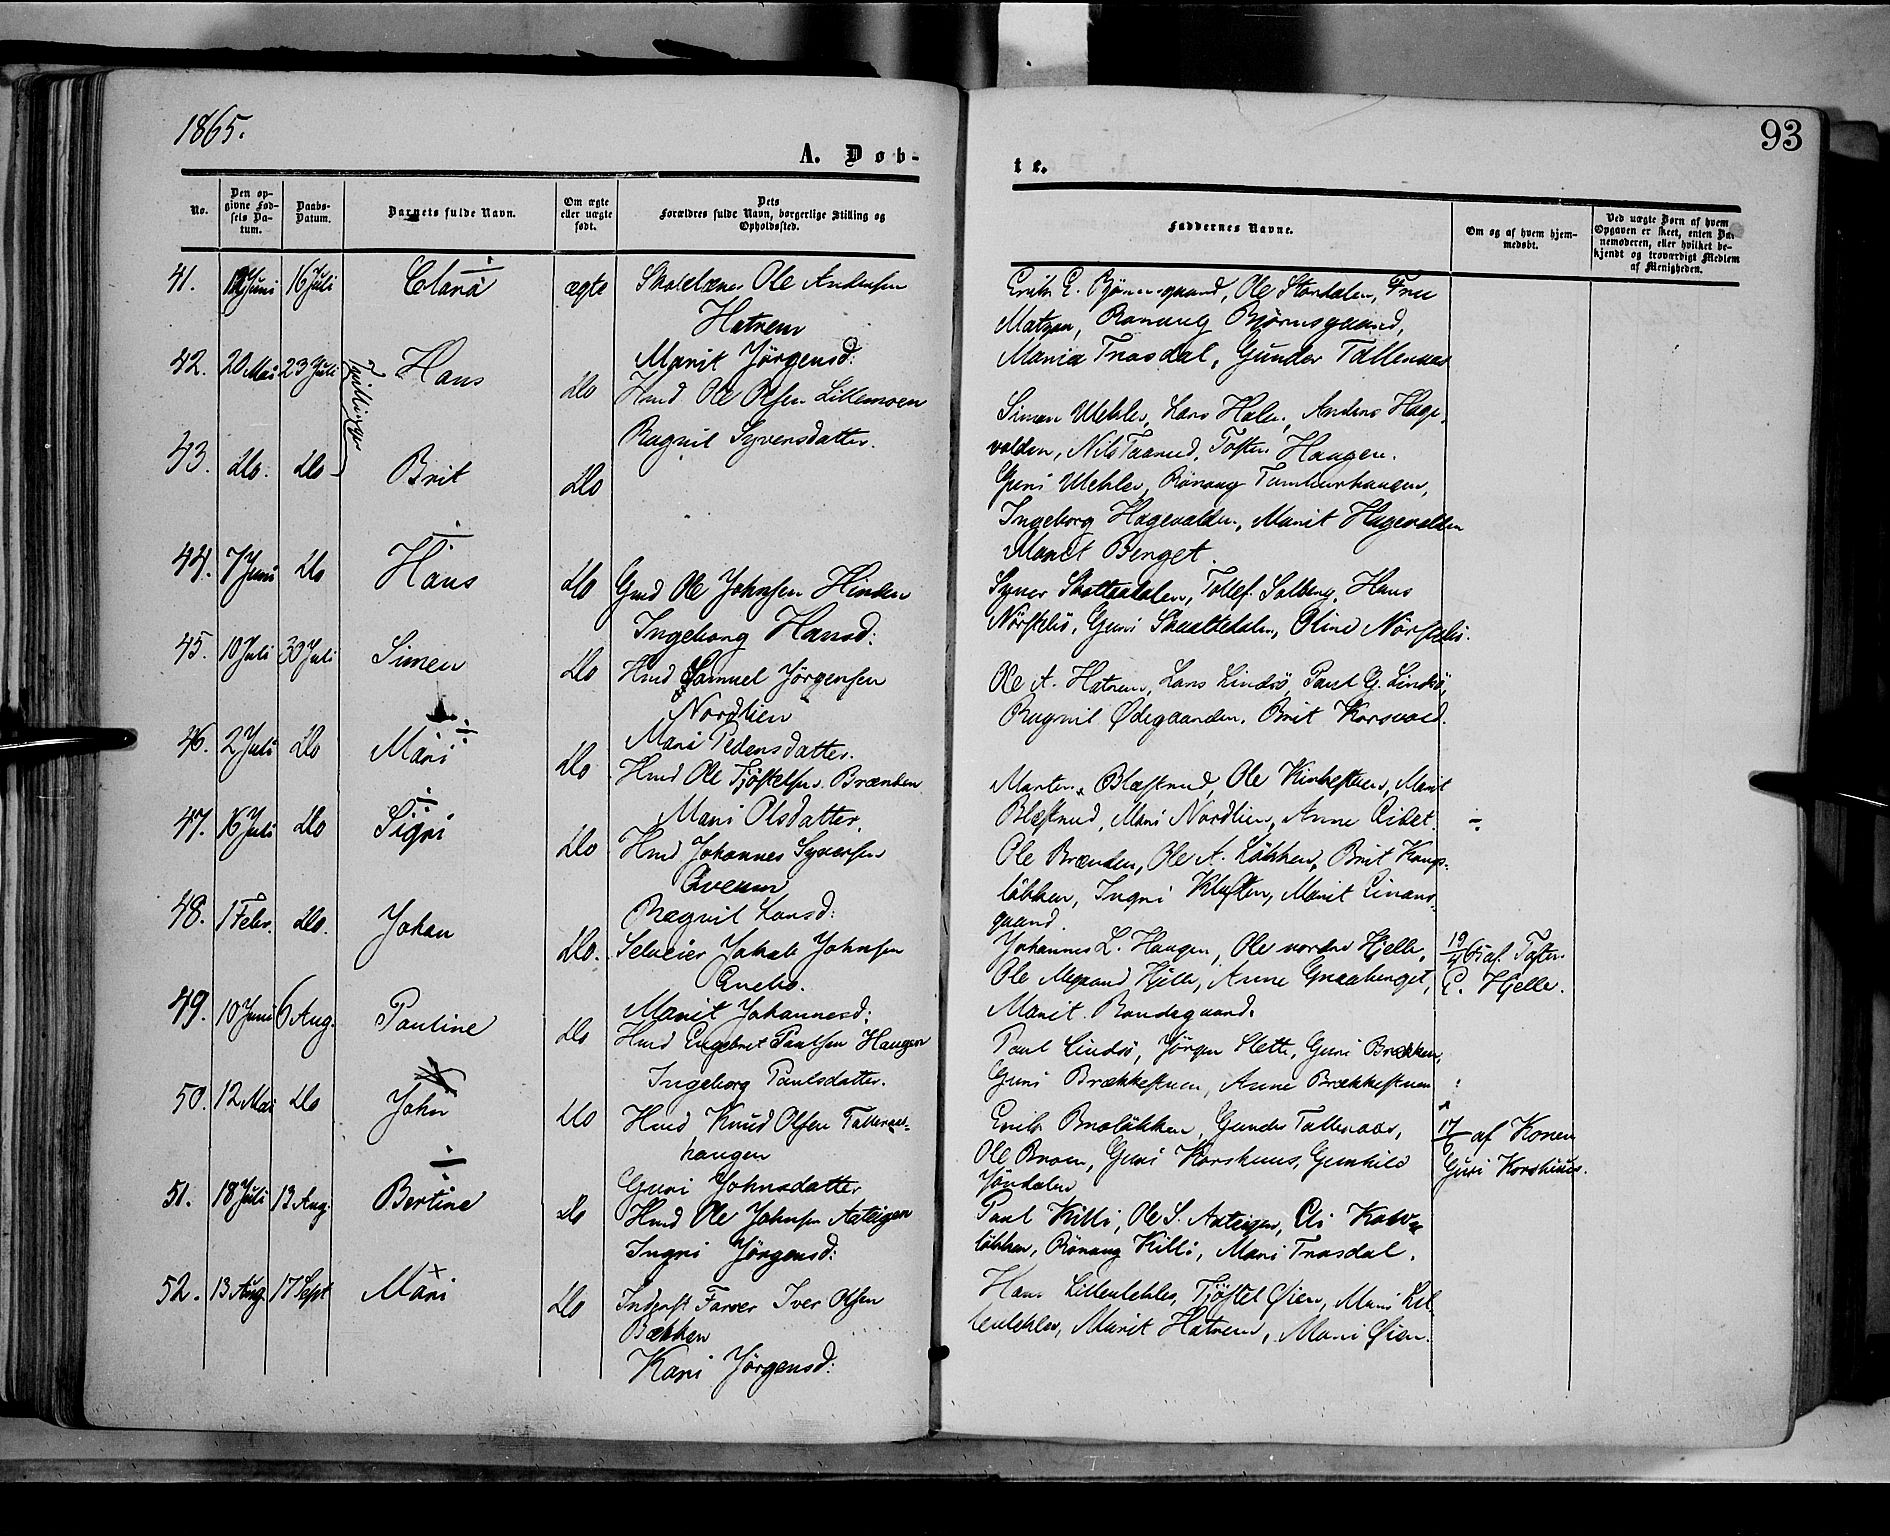 1865.
93
A. Døb-
te.
No.
Den op-
givne Fød-
sels Da-
tum.
Daabs-
Datum.
Barnets fulde Navn.
Om ægte
eller uægte
født.
Dets
Forældres fulde Navn, borgerlige Stilling og
Opholdssted.
Faddernes Navne.
Om og af hvem hjem-
medøbt.
Ved uægte Børn af hvem
Opgaven er skeet, enten Bar-
nemoderen, eller hvilket be-
kjendt og troværdigt Medlem
af Menigheden.
41. Juni 16 Juli Clara ægte Skolelærer Ole Andersen
Hatrem
Marit Jörgensd:
Erik E. Björnsgaard, Ole Stordalen, Frue
Matzen, Rönaug Björnsgaard,
Maria Trosdal, Gunder Talleraas
42. 20 Mai 23 Juli Tvillinger Hans do Hmd Ole Olsen Lillemoen
Ragnil Syversdatter.
Simen Uchler, Lars Haler, Anders Hage-
volden, Nils Taarud, Tosten Haugen.
43. do. do Brit do
Guri Uchler, Rönaug
Ingeborg Hagevolden, Marit Hagevolden
Marit Berget.
44. 7 Juni do Hans do Gmd Ole Johnsen Hinden
Ingeborg Hansd:
Syver Skottedalen, Tollef Solberg, Hans
Nörsteliö, Guri Skottedalen, Oline Nörsteliö.
45. 10 Juli 30 Juli Simen do Hmd Samuel Jörgensen
Nordlien
Mari Pedersdatter.
Ole A. Hatrem, Lars Lindsö, Paul G. Lindsö,
Ragnil Ødegaarden, Brit Korsvold.
46. 2 Juli do Mari do Hmd Ole Tjöstelsen Brænden
Mari Olsdatter.
Morten Blæstrud, Ole Kirkestuen, Marit
Blæstrud, Mari Nordlien, Anne
47. 16 Juli do Sigri do Hmd Johannes Syversen
Qveum
Ragnil Larsd:
Ole Brænden, Ole A. Lökken, Brit
lökken, Ingri Kluften, Marit Einars-
gaard.
48. 1 Febr. do. Johan do. Selveier Jakob Johnsen
Marit Johannesd:
Johannes L. Haugen, Ole nordre Hjelle,
Ole Hjelle, Anne Graaberget,
Marit Bondegaard.
19
65 af Tosten
E. Hjelle.
49. 10 Juni 6 Aug. Pauline do Hmd Engebret Paulsen Haugen
Ingeborg Paulsdatter.
Paul Lindsö, Jörgen Slette, Guri Brækken,
Guri Brækkestuen, Anne Brækkestuen
50. 12 Mai do John do Hmd Knud Olsen Tolleraas-
haugen
Guri Johnsdatter
Erik Brolökken, Gunder Tolleraas,
Ole Broen, Guri Korshuus, Gunhild
Jöndalen
17
6 af Konen
Guri Korshuus.
51. 18 Juli 13 Aug. Bertine do Hmd Ole Johnsen Aateigen
Ingri Jörgensd:
Paul Killi, Ole S. Aateigen, Eli
lökken, Rönaug Killi, Mari Trosdal.
52. 13 Aug. 17 Sept Mari do Inderst Farver Iver Olsen
Bækken
Kari Jörgensd:
Hans Lilleulehler, Tjöstel Øien, Mari Lil-
leulehler, Marit Hatrem, Mari Øien.